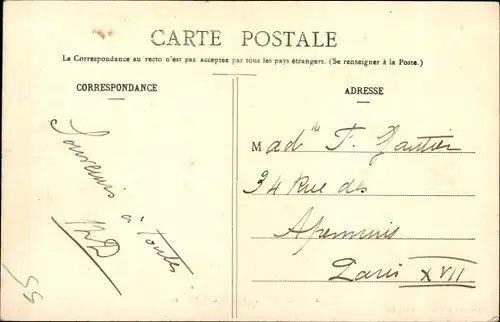 CARTE POSTALE
La Correspondance au recto n'est pas acceptée par tous les pays étrangers. (Se renseigner à la Poste.)
CORRESPONDANCE
Souvenirs
à Toutes
ADRESSE
Madlle F. Gautier
34 Rue des
Apennins
Paris XVII
55